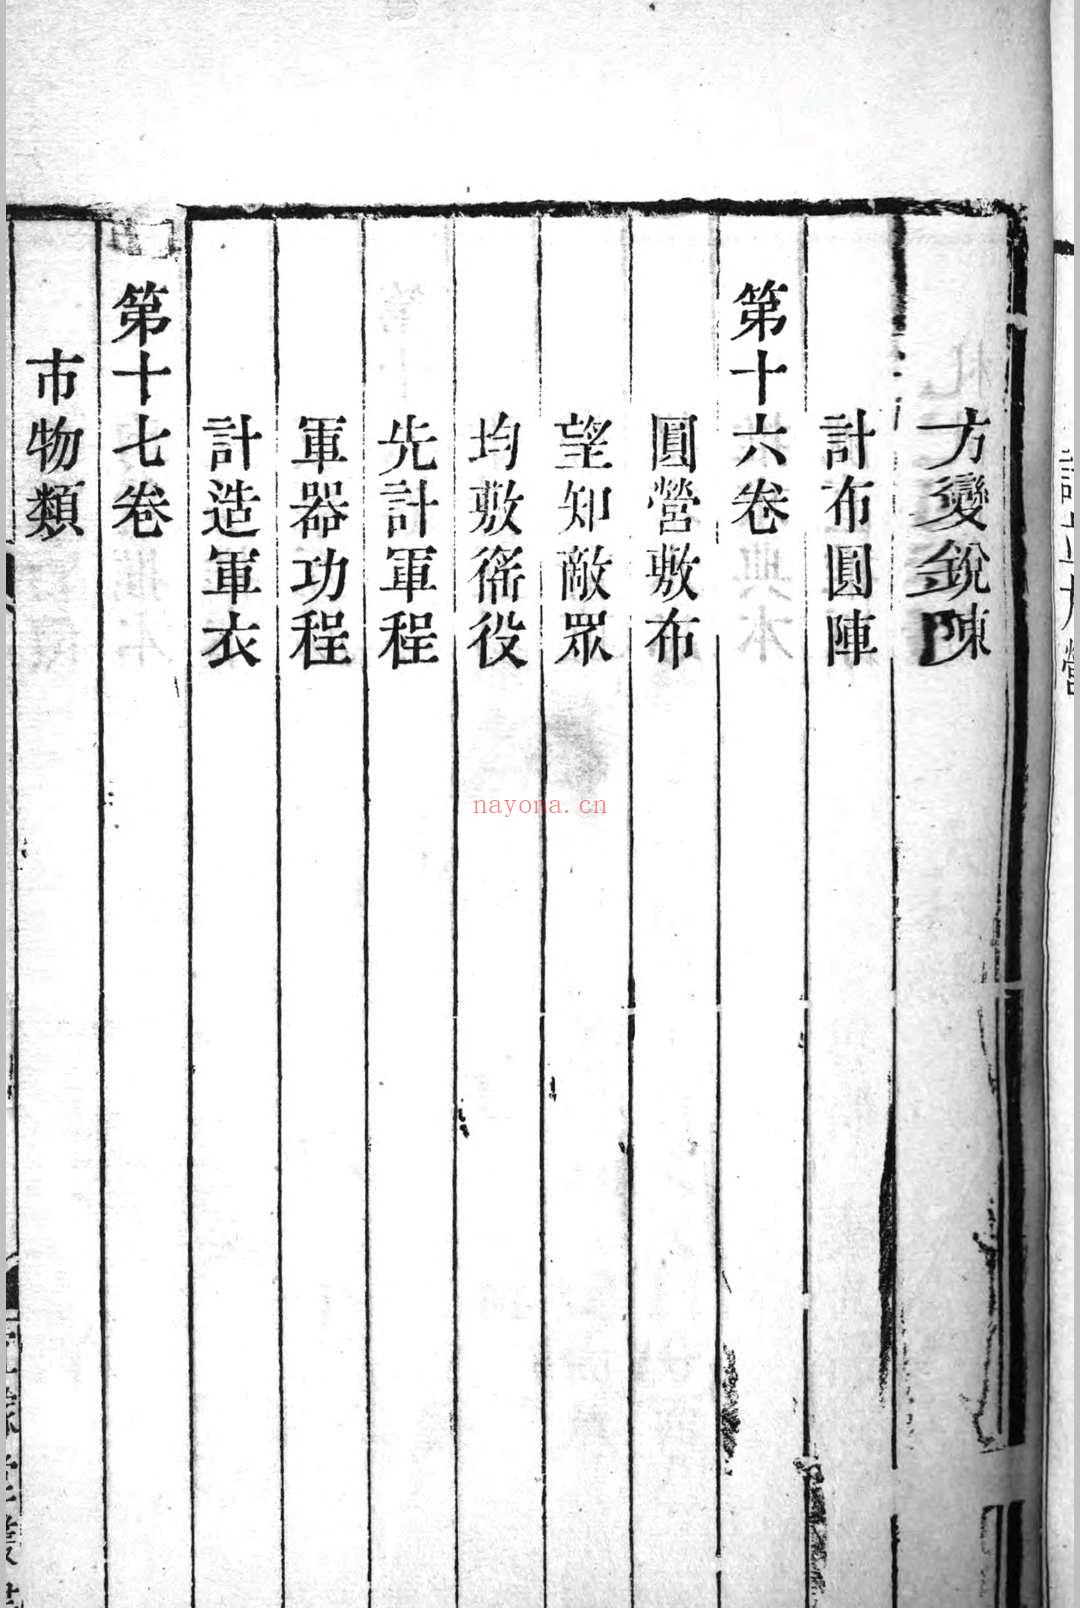 方變銳陳
計布圓陣
第十六卷
圓營敷布
望知敵眾
均敷徭役
先計軍程
軍器功程
計造軍衣
第十七卷
市物類
nayona.cn